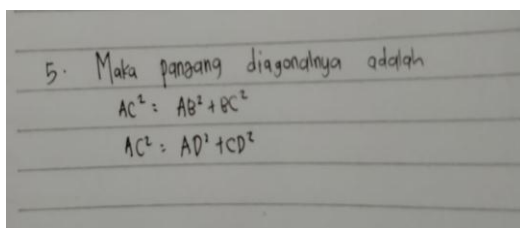 5. Maka panjang diagonalnya adalah
AC² = AB² + BC²
AC² = AD² + CD²